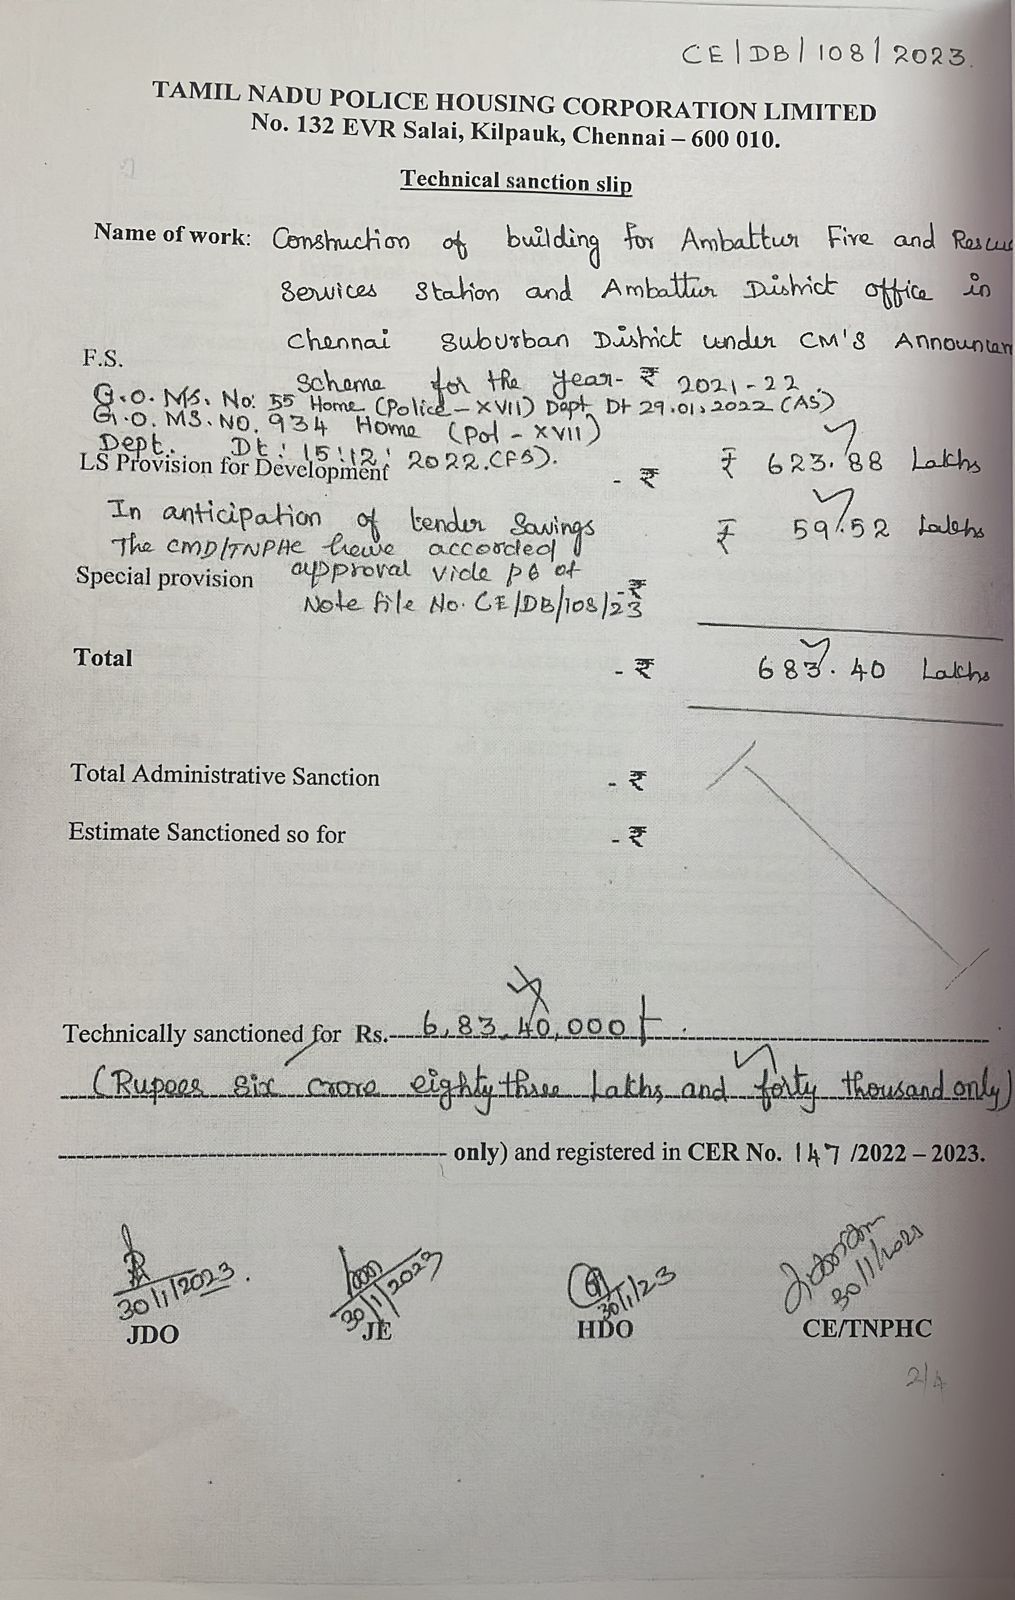 CE/DB/108/2023.
TAMIL NADU POLICE HOUSING CORPORATION LIMITED
No. 132 EVR Salai, Kilpauk, Chennai – 600 010.
Technical sanction slip
Name of work: Construction of building for Ambattur Fire and Rescue
Services Station and Ambattur District office in
Chennai Suburban District under CM'S Announcem
F.S. Scheme for the year- ₹ 2021-22.
G.O. MS. No: 55 Home (Police - XVII) Dept Dt 29.01.2022 (AS)
G.O. MS. NO. 934 Home (Pol - XVII)
Dept. Dt: 15.12.2022.(FS). ₹ 623.88 Lakhs
LS Provision for Development - ₹
In anticipation of tender Savings ₹ 59.52 Lakhs
The CMD/TNPHC have accorded
Special provision approval vide P6 of - ₹
Note file No. CE/DB/108/23
Total - ₹ 683.40 Lakhs
Total Administrative Sanction - ₹
Estimate Sanctioned so for - ₹
Technically sanctioned for Rs. 6,83,40,000/-
(Rupees six crore eighty three Lakhs and forty thousand only)
only) and registered in CER No. 147 /2022 – 2023.
30/1/2023. 30/1/2023 30/1/23 30/1/2023
JDO JE HDO CE/TNPHC
2/4